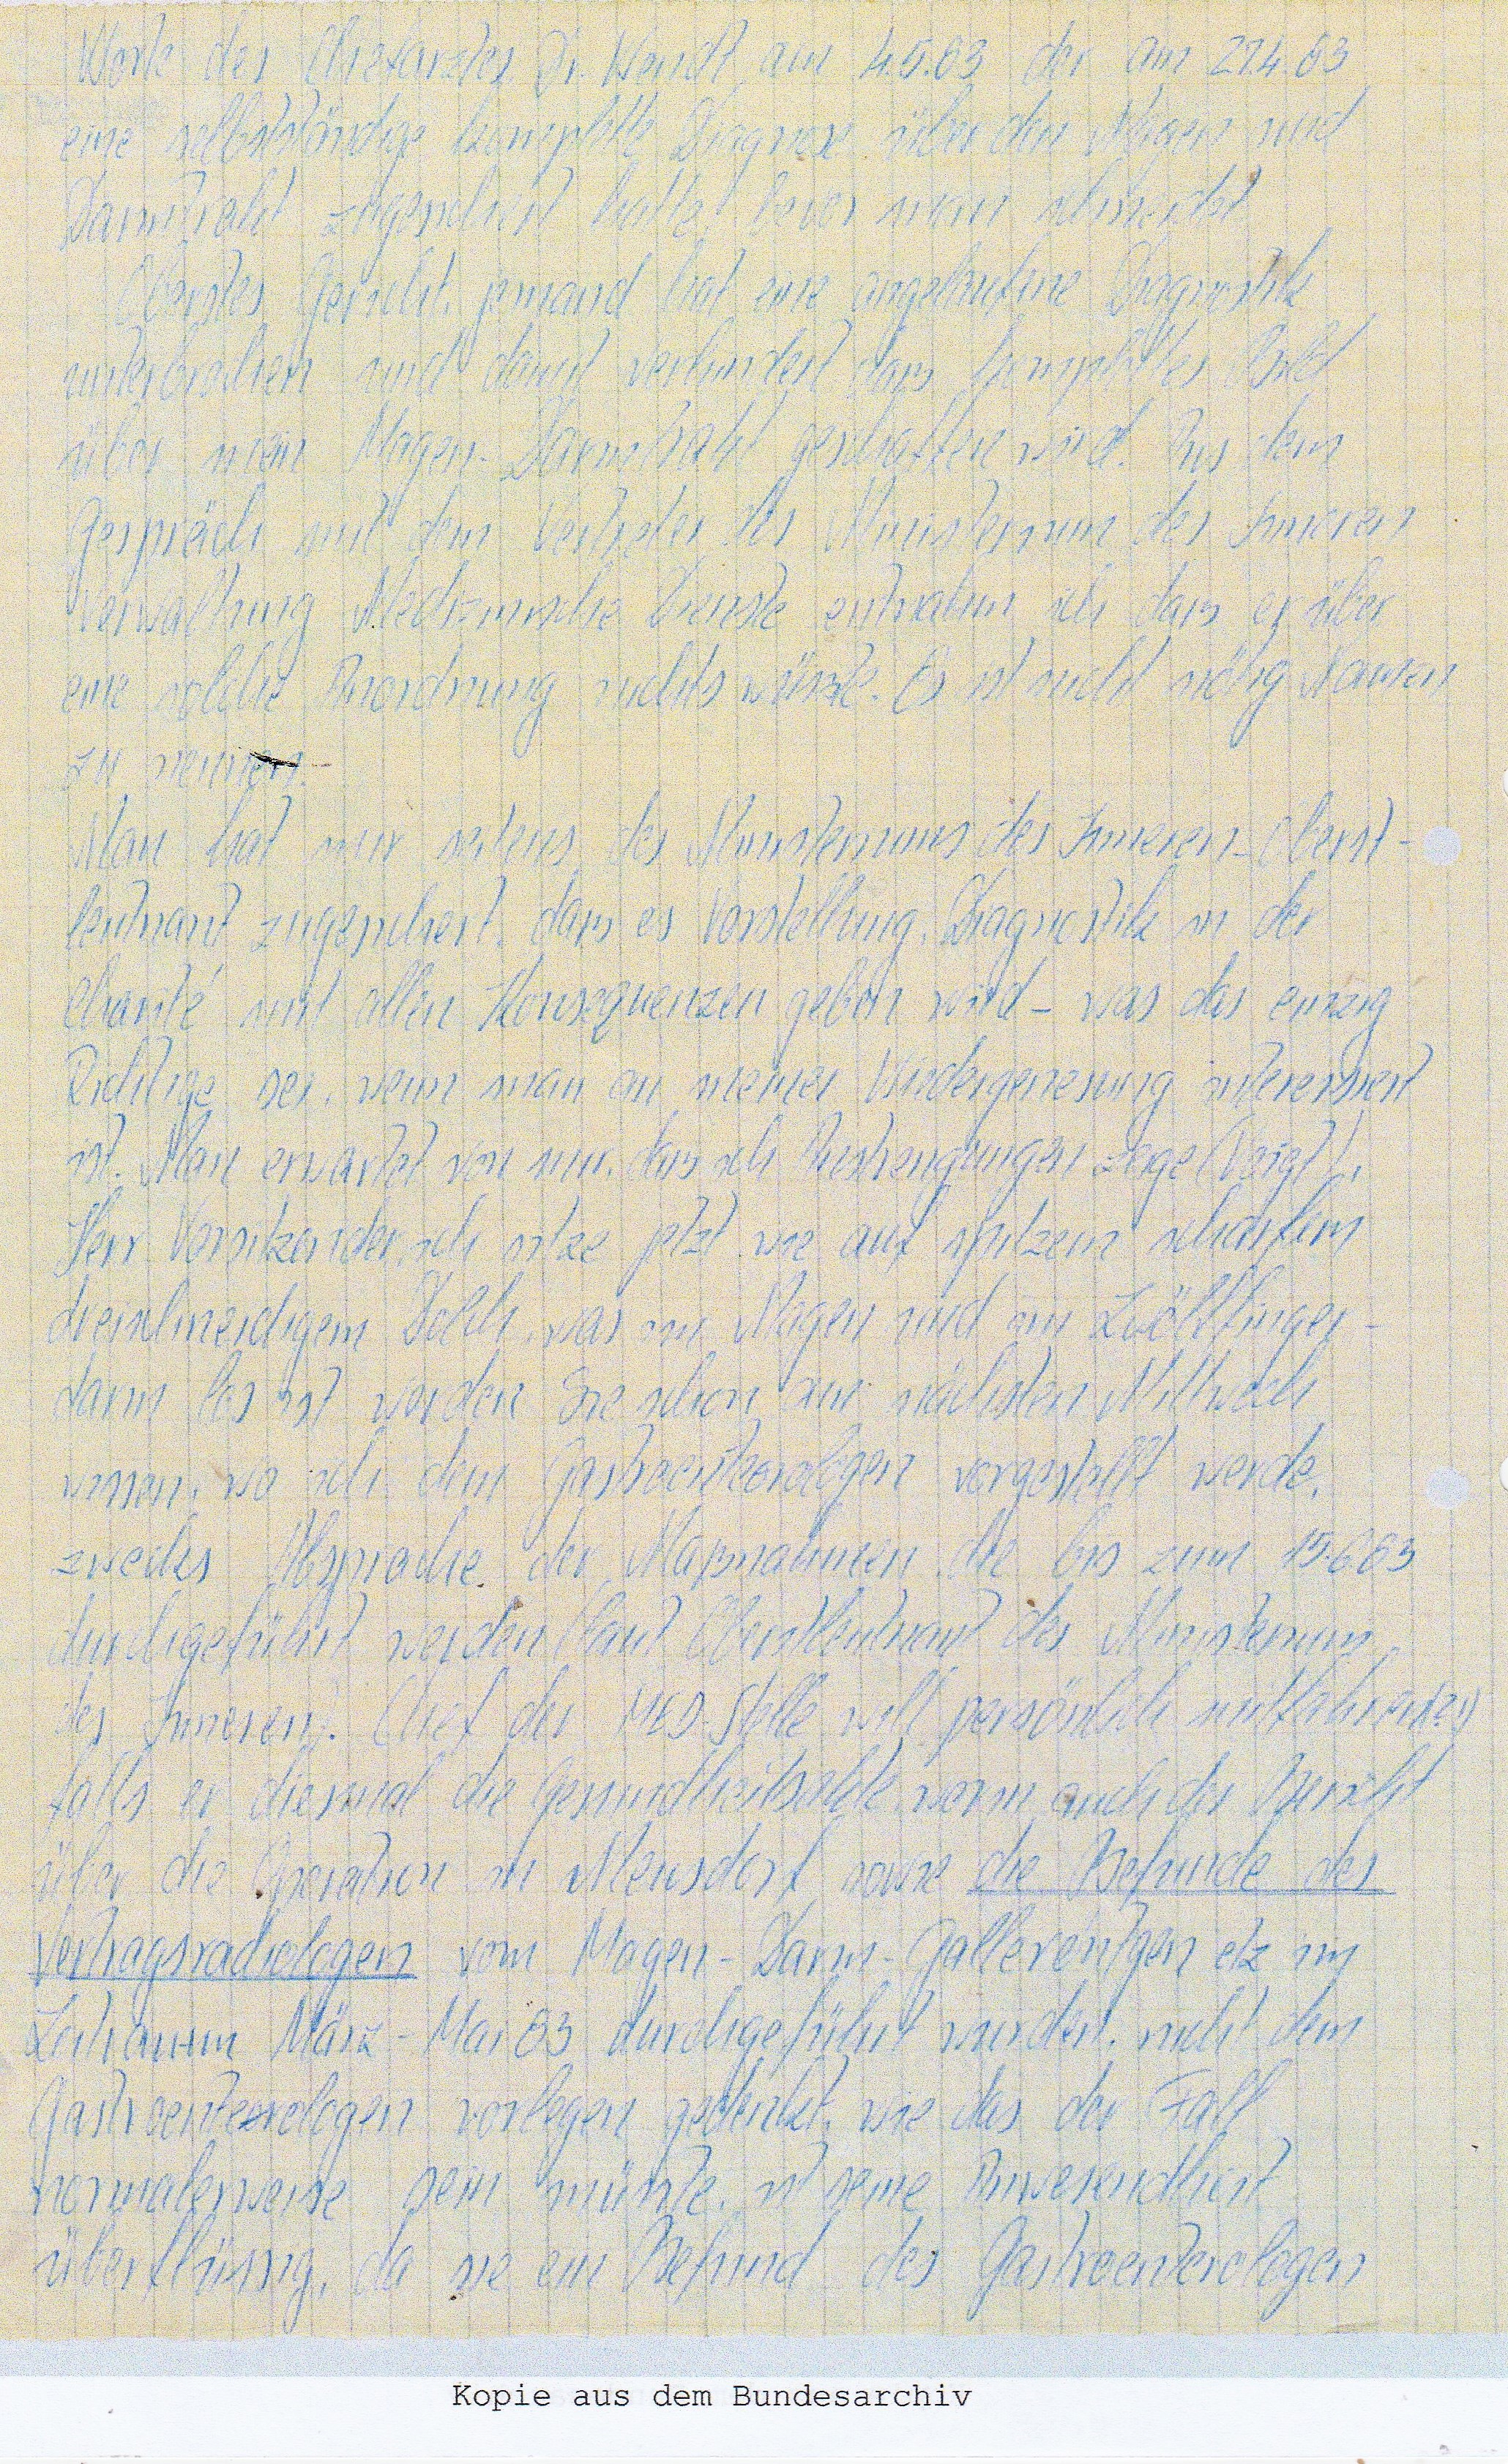 Worte des Chefarztes Dr. Wendt am 4.5.83 der am 27.4.83
eine selbstständige komplette Diagnose über den Magen und
Darmtrakt zugesichert hatte, bevor man schneidet
Oberstes Gericht, jemand hat eine angelaufene Diagnostik
unterbrochen und damit verhindert dass komplettes Bild
über mein Magen-Darmtrakt geschaffen wird. Aus dem
Gespräch mit dem Vertreter des Ministerium des Inneren
Verwaltung Medizinische Dienste entnahm ich dass er über
eine solche Anordnung nichts wüsste. Es ist nicht nötig Namen
zu nennen.-
Man hat mir seitens des Ministeriums des Inneren-Oberst-
leutnant zugesichert, dass es Vorstellung, Diagnostik in der
Charité mit allen Konsequenzen geben wird - was das einzig
Richtige sei, wenn man an meiner Wiedergenesung interessiert
ist. Man erwartet von mir, dass ich Anstrengungen zeige (Voigt)!
Herr Vorsitzender, ich sitze jetzt wie auf spitzem scharfem
dreischneidigem Dolch, was im Magen und im Zwölffinger-
darm los ist werden Sie schon am nächsten Mittwoch
wissen, wo ich dem Gastroenterologen vorgestellt werde,
zwecks Absprache der Massnahmen die bis zum 15.6.83
durchgeführt werden (laut Oberstleutnant des Ministerium
des Inneren). Chef der MED-Stelle will persönlich mitfahren(?!)
falls er diesmal die Gesundheitsakte, worin auch der Bericht
über die Operation in Meusdorf sowie die Befunde des
Vertragsradiologen vom Magen-Darm-Galleröntgen etz im
Zeitraum März-Mai 83 durchgeführt wurden, nicht dem
Gastroenterologen vorlegen gedenkt, wie das der Fall
normalerweise sein müsste, ist seine Anwesendheit
überflüssig, da sie ein Befund des Gastroenterologen
Kopie aus dem Bundesarchiv